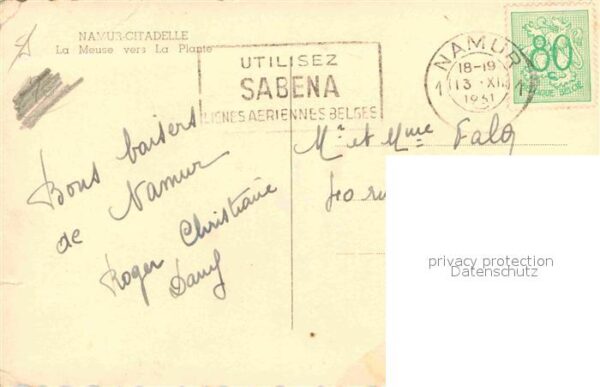 NAMUR-CITADELLE
La Meuse vers La Plante
UTILISEZ
SABENA
LIGNES AERIENNES BELGES
NAMUR
18-19
13 XI
1951
1 1
80
BELGIE
Bons baisers
de Namur
Roger Christiane
Mr et Mme
40 ru
privacy protection
Datenschutz